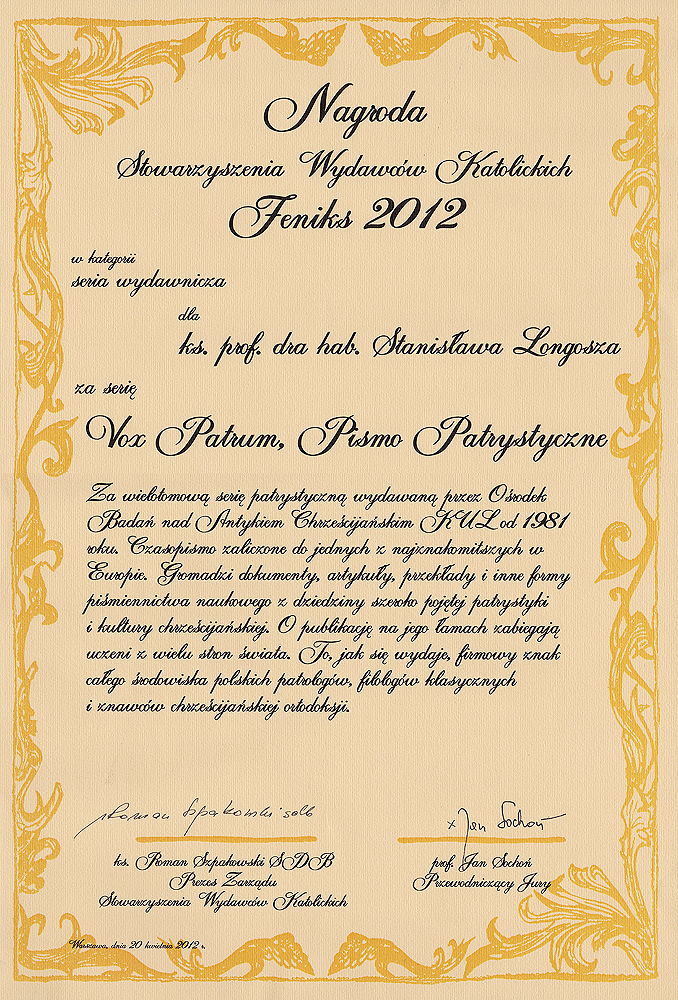 Nagroda
Stowarzyszenia Wydawców Katolickich
Feniks 2012
w kategorii
seria wydawnicza
dla
ks. prof. dra hab. Stanisława Longosza
za serię
Vox Patrum, Pismo Patrystyczne
Za wielotomową serię patrystyczną wydawaną przez Ośrodek
Badań nad Antykiem Chrześcijańskim KUL od 1981
roku. Czasopismo zaliczone do jednych z najznakomitszych w
Europie. Gromadzi dokumenty, artykuły, przekłady i inne formy
piśmiennictwa naukowego z dziedziny szeroko pojętej patrystyki
i kultury chrześcijańskiej. O publikację na jego łamach zabiegają
uczeni z wielu stron świata. To, jak się wydaje, firmowy znak
całego środowiska polskich patrologów, filologów klasycznych
i znawców chrześcijańskiej ortodoksji.
Roman Szpakowski sdb
x Jan Sochoń
ks. Roman Szpakowski SDB
Prezes Zarządu
Stowarzyszenia Wydawców Katolickich
prof. Jan Sochoń
Przewodniczący Jury
Warszawa, dnia 20 kwietnia 2012 r.